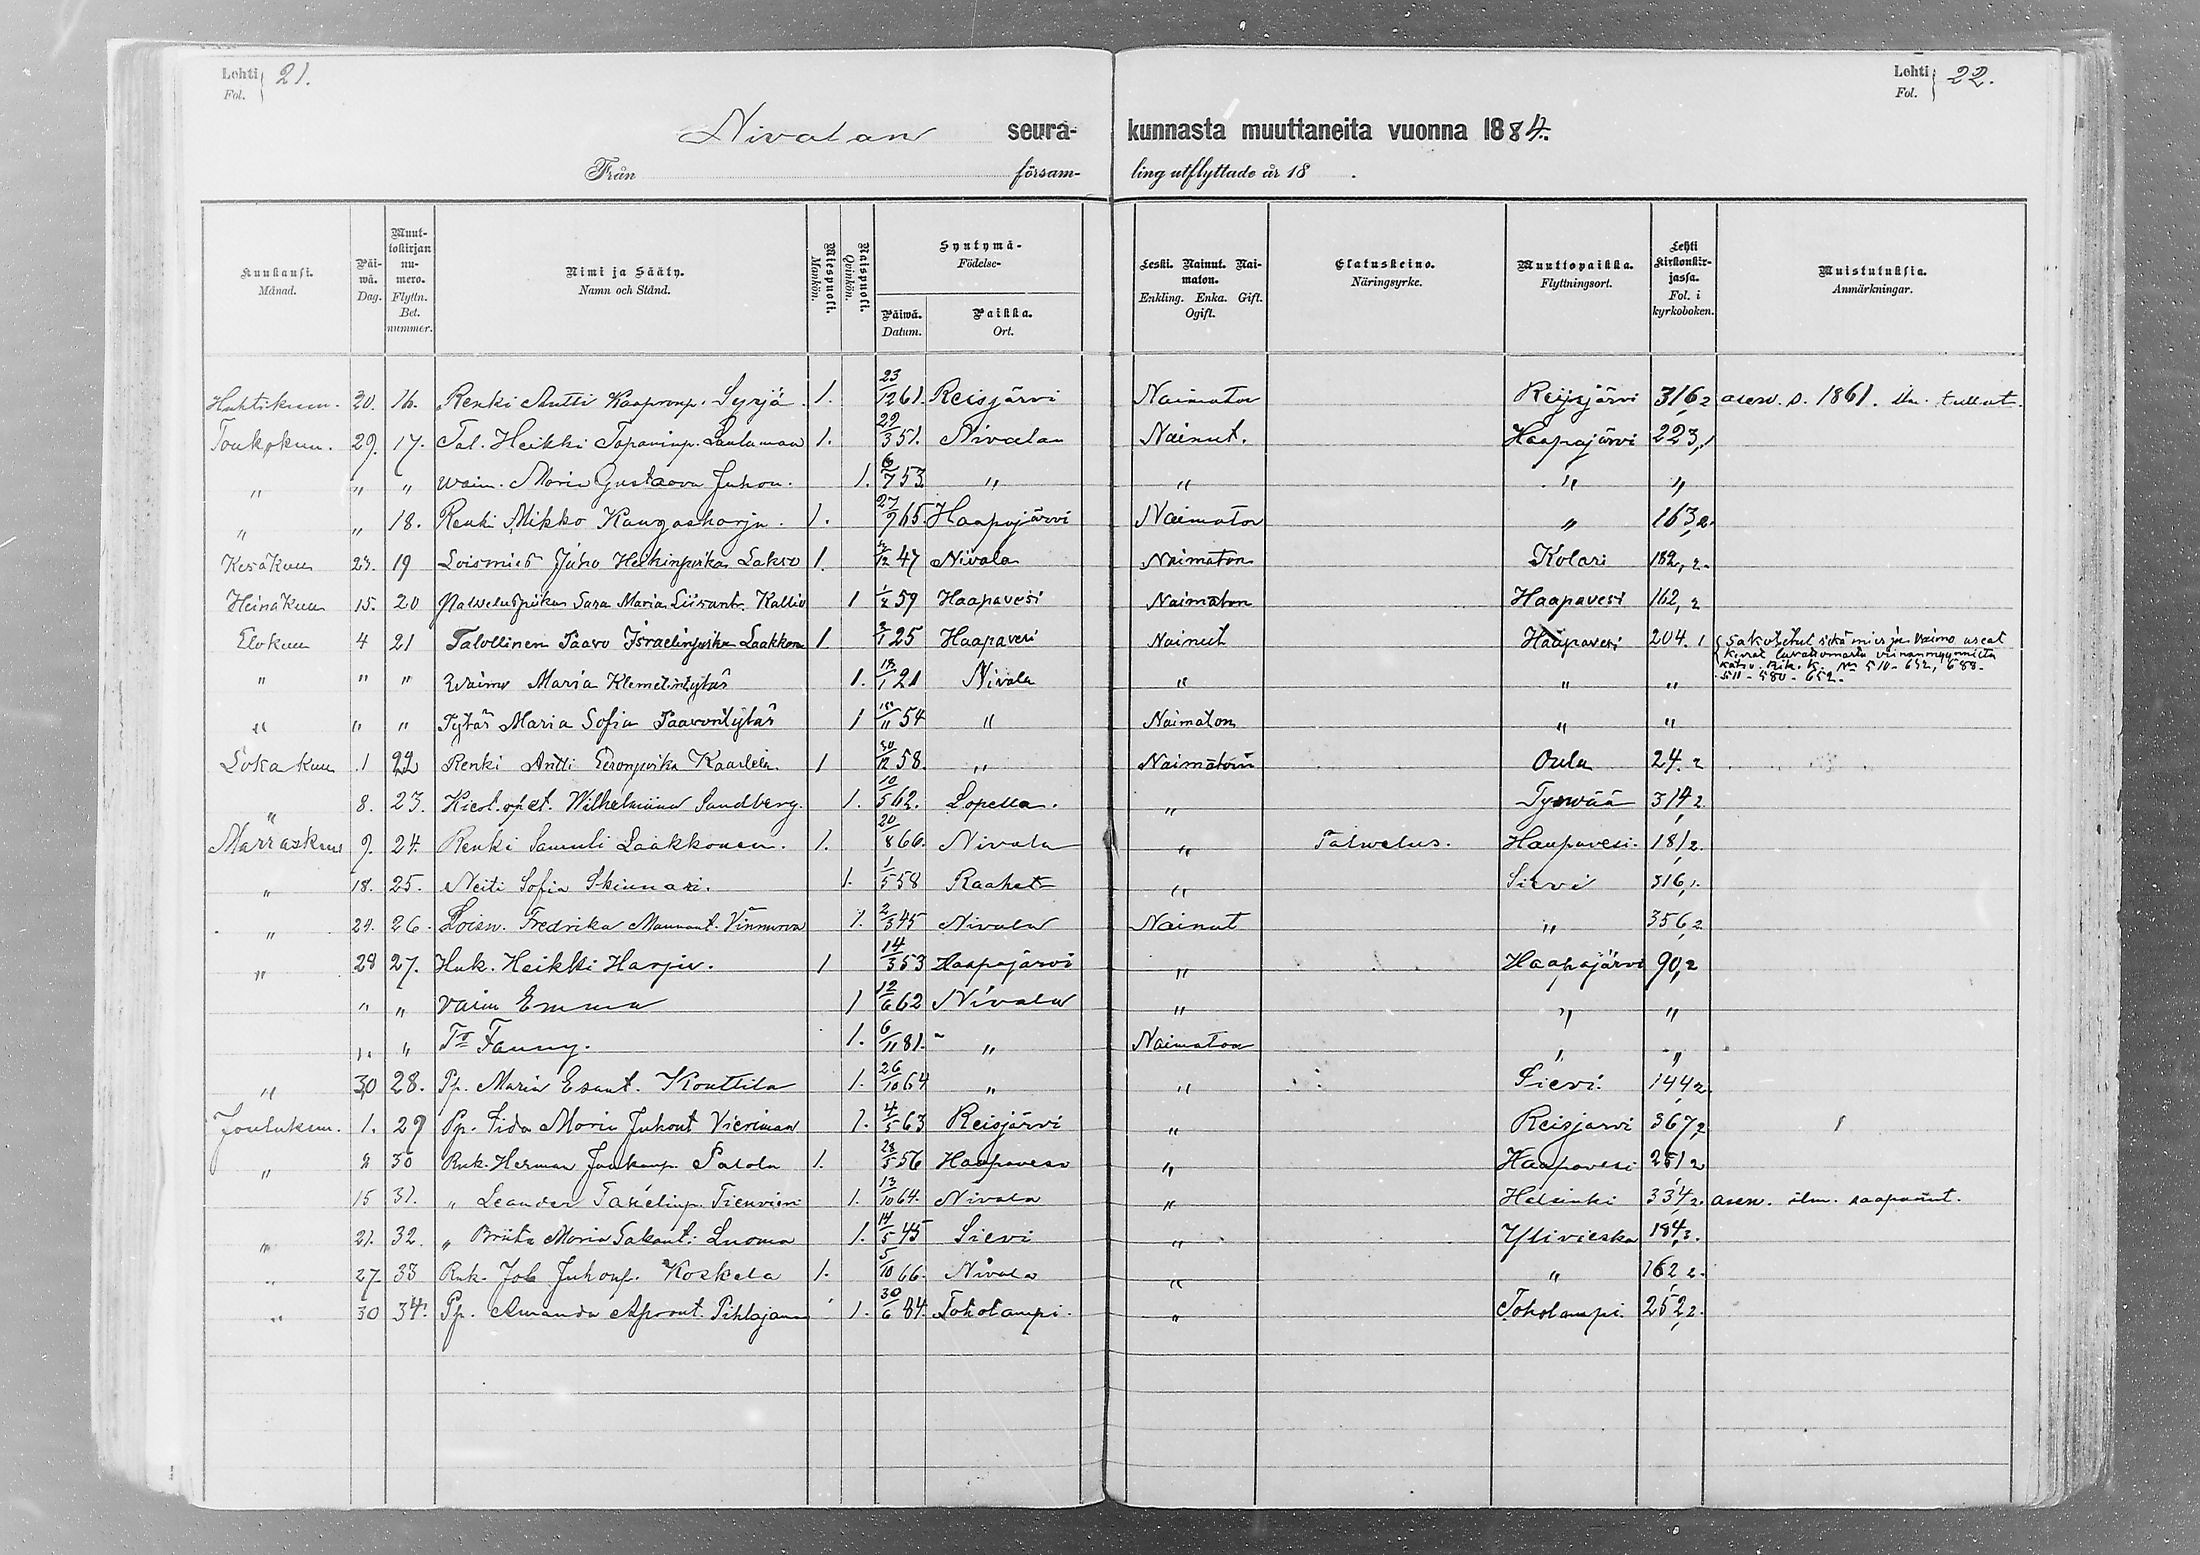 Lehti Fol. 21.
Lehti Fol. 22.
Nivalan seura- kunnasta muuttaneita vuonna 1884.
Från församling utflyttade år 18 .
Kuukausi. Månad.
Päiwä. Dag.
Muuttokirjan numero. Flyttn. Bet. nummer.
Nimi ja Sääty. Namn och Stånd.
Miespuoli. Mankön.
Naispuoli. Qvinkön.
Syntymä- Födelse-
Päiwä. Datum.
Paikka. Ort.
Leski. Nainut. Naimaton. Enkling. Enka. Gift. Ogift.
Elatuskeino. Näringsyrke.
Muuttopaikka. Flyttningsort.
Lehti kirkonkirjassa. Fol. i kyrkoboken.
Muistutuksia. Anmärkningar.
Huhtikuu. 30. 16. Renki Antti Kaaponp. Syrjä. 1. 23/12 61. Reisjärvi Naimaton Reisjärvi 316,2 asew. s. 1861. tullut.
Toukokuu. 29. 17. Tal. Heikki Tapaninp. 1. 29/3 51. Nivala Nainut. Haapajärvi 223,1
" " " waim. Maria Gustaava Juhon. 1. 6/7 53 " " " "
" " 18. Renki Mikko Kangasharju. 1. 27/9 65. Haapajärvi Naimaton " 163,2.
Kesäkuu 23. 19 Loismies Juho Heikinpoika 1. /12 47 Nivala Naimaton Kolari 182,2.
Heinäkuu 15. 20 Palveluspiika Sara Maria Kallio 1 1/2 59 Haapavesi Naimaton Haapavesi 162,2
Elokuu 4 21 Talollinen Paavo Israelinpoika Laakkonen 1. 2/1 25 Haapavesi Nainut Haapavesi 204.1 Sakotetut sekä mies ja vaimo useat
kerrat luvattomasta viinanmyynnistä
katso. Rik. K. No 510-652, 688-
511-580-652-
" " " Waimo Maria Klemetintytär 1. 18/1 21 Nivala " " "
" " " Tytär Maria Sofia Paavontytär 1 /11 54 " Naimaton " "
Lokakuu 1 22 Renki Antti Eeronpoika Kaarlela. 1 30/12 58. " Naimaton Oulu 24.2
" 8. 23. Wilhelmiina Sandberg. 1. 10/5 62. Lopella. " Tyrwää 314,2
Marraskuu 9. 24. Renki Samuli Laakkonen. 1. 20/8 66. Nivala " Palwelus. Haapavesi. 181,2.
" 18. 25. Neiti Sofia Skinnari. 1. 1/5 58 Raahet " Sievi 316,1.
" 24. 26. Loisw. Fredrika Mannunt. 1. 2/3 45 Nivala Nainut " 356,2
" 28 27. Huk. Heikki Harju. 1 14/3 53 Haapajärvi " Haapajärvi 90,2
" " vaim Emma 1 12/6 62 Nivala " " "
" " Tr Fanny. 1. 6/11 81. " Naimaton " "
" 30 28. Pp. Maria Esant. Kouttila 1. 26/10 64 " " Sievi. 144,2
Joulukuu. 1. 29 Pp. Fida Maria Juhont Vieriman 1. 4/5 63 Reisjärvi " Reisjärvi 367,2
" 8 30 Rnk. Herman Salola 1. 28/5 56 Haapavesi " Haapavesi 251,2
15 31. " Leander 1. 13/10 64. Nivala " Helsinki 334,2. asew. ilm. saapunut.
" 21. 32. " Briita Maria Sakant. Luoma 1. 14/5 45 Sievi " Ylivieska 184,3.
" 27. 33 Rnk. Job Juhonp. Koskela 1. 5/10 66. Nivala " " 162 2.
" 30 34. Pp. Amanda Apront. Pihlajam 1. 30/6 84 Toholampi. " Toholampi 252,2.